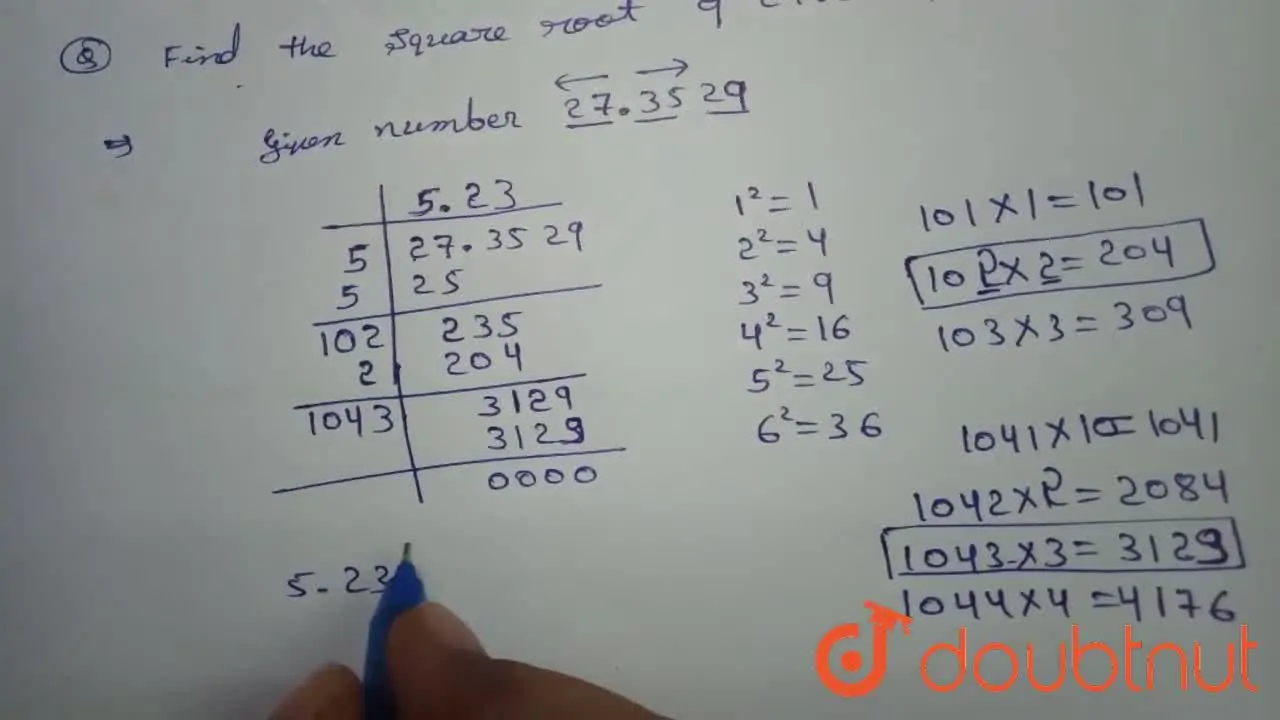 Q Find the square root of
⇒ Given number 27.35 29
5.23
5 27.35 29
5 25
102 235
2 204
1043 3129
3129
0000
5.23
1² = 1
2² = 4
3² = 9
4² = 16
5² = 25
6² = 36
101 × 1 = 101
102 × 2 = 204
103 × 3 = 309
1041 × 1 = 1041
1042 × 2 = 2084
1043 × 3 = 3129
1044 × 4 = 4176
doubtnut